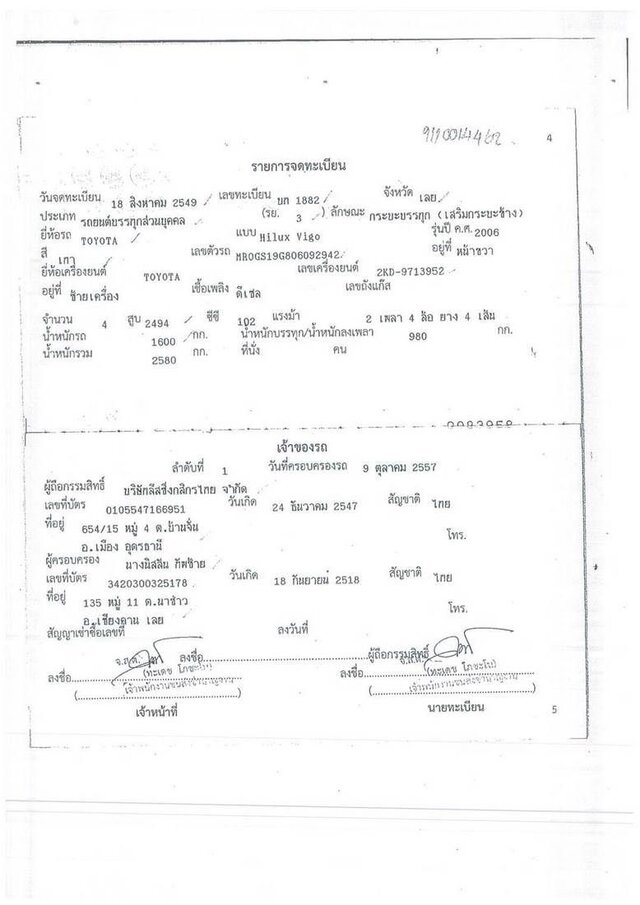 4
รายการจดทะเบียน
วันจดทะเบียน 18 สิงหาคม 2549 เลขทะเบียน บท 1882 จังหวัด เลย
ประเภท รถยนต์บรรทุกส่วนบุคคล (รย. 3 ) ลักษณะ กระบะบรรทุก (เสริมกระบะข้าง)
ยี่ห้อรถ TOYOTA แบบ Hilux Vigo รุ่นปี ค.ศ. 2006
สี เทา เลขตัวรถ MR0GS19G806092942 อยู่ที่ หน้าขวา
ยี่ห้อเครื่องยนต์ TOYOTA เลขเครื่องยนต์ 2KD-9713952
อยู่ที่ ซ้ายเครื่อง เชื้อเพลิง ดีเซล เลขถังแก๊ส
จำนวน 4 สูบ 2494 ซีซี 102 แรงม้า 2 เพลา 4 ล้อ ยาง 4 เส้น
น้ำหนักรถ 1600 กก. น้ำหนักบรรทุก/น้ำหนักลงเพลา 980 กก.
น้ำหนักรวม 2580 กก. ที่นั่ง คน
เจ้าของรถ
ลำดับที่ 1 วันที่ครอบครองรถ 9 ตุลาคม 2557
ผู้ถือกรรมสิทธิ์ บริษัทลีสซิ่งกสิกรไทย จำกัด
เลขที่บัตร 0105547166951 วันเกิด 24 ธันวาคม 2547 สัญชาติ ไทย
ที่อยู่ 654/15 หมู่ 4 ต.บ้านจั่น โทร.
อ.เมือง อุดรธานี
ผู้ครอบครอง
เลขที่บัตร 3420300325178 วันเกิด 18 กันยายน 2518 สัญชาติ ไทย
ที่อยู่ 135 หมู่ 11 ต.นาซ่าว โทร.
อ.เชียงคาน เลย
สัญญาเช่าซื้อเลขที่ ลงวันที่
ลงชื่อ ผู้ถือกรรมสิทธิ์
จ.ส.ต.
ลงชื่อ ลงชื่อ
เจ้าหน้าที่ นายทะเบียน
5